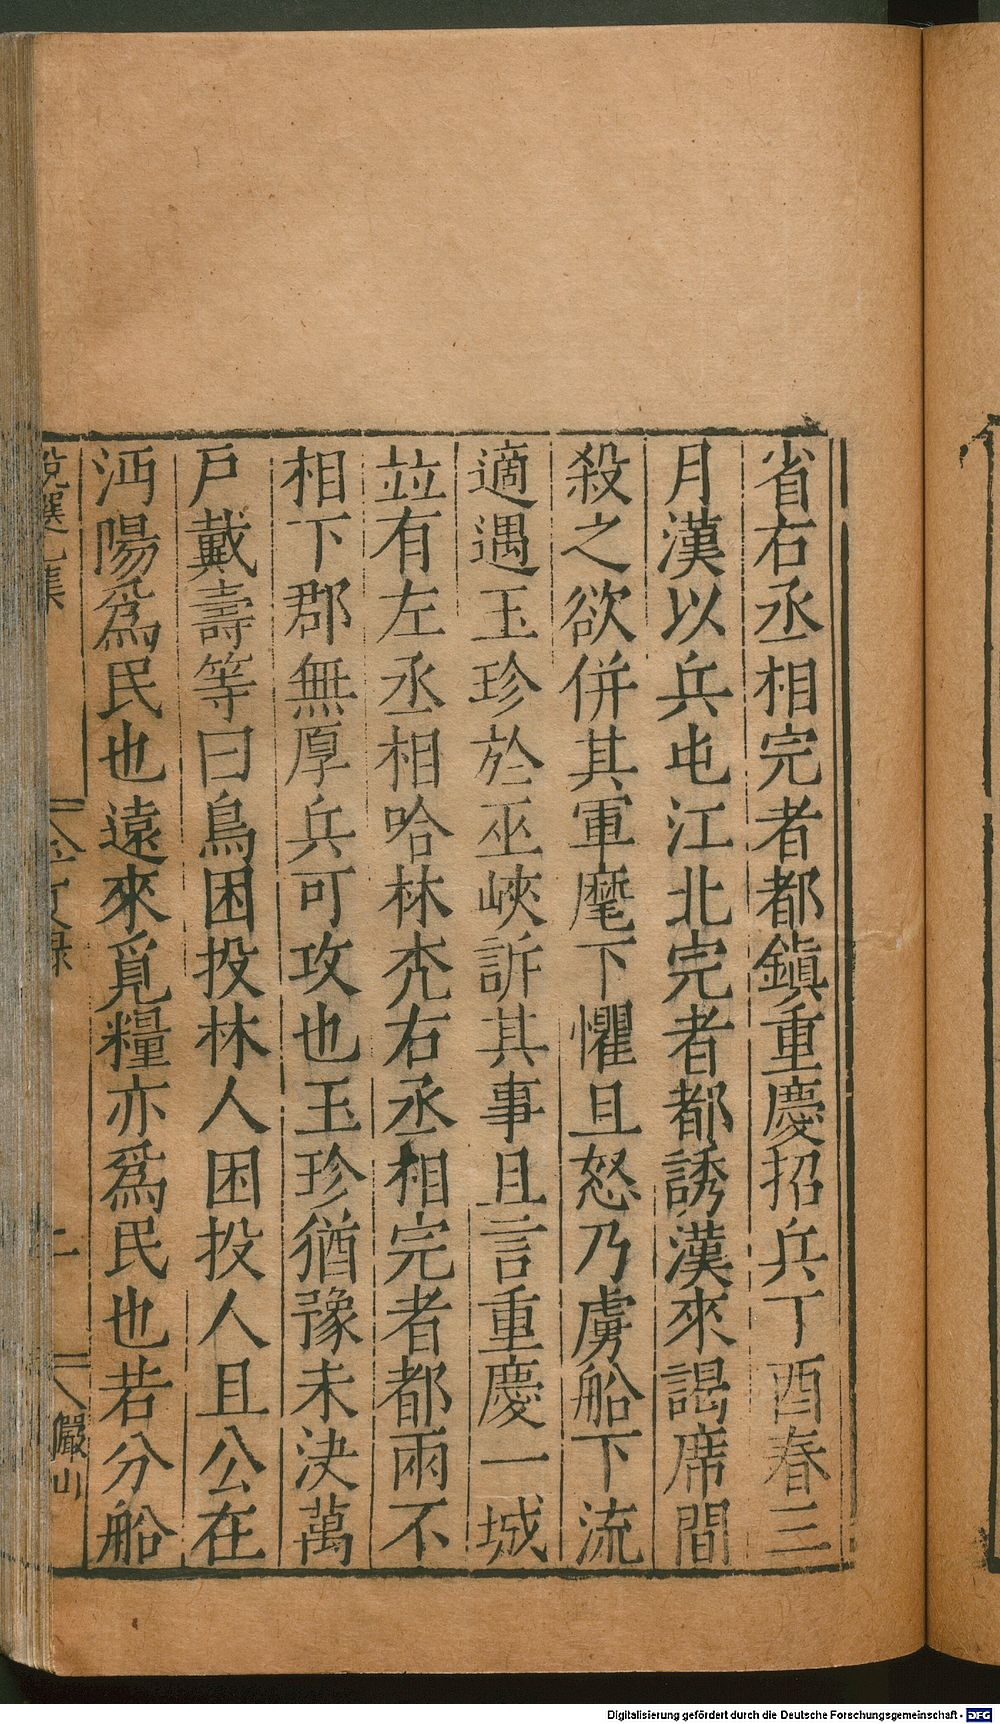 省右丞相完者都鎭重慶招兵丁酉春三
月漢以兵屯江北完者都誘漢來謁席間
殺之欲併其軍麾下懼且怒乃虜船下流
適遇玉珍於巫峽訴其事且言重慶一城
並有左丞相哈林禿右丞相完者都兩不
相下郡無厚兵可攻也玉珍猶豫未決萬
戶戴壽等曰鳥困投林人困投人且公在
沔陽爲民也遠來覓糧亦爲民也若分船
儼山
Digitalisierung gefördert durch die Deutsche Forschungsgemeinschaft - DFG